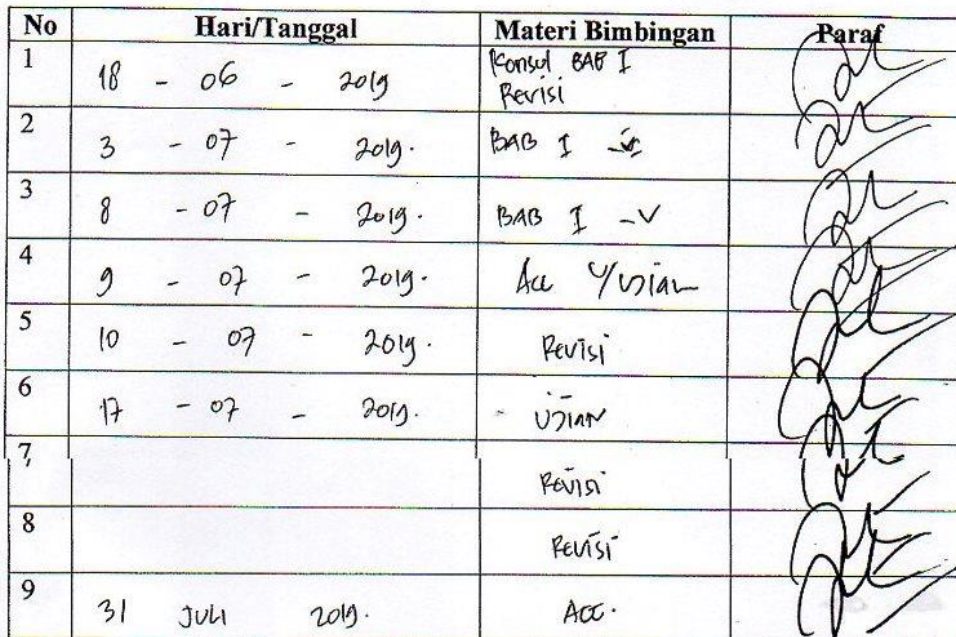 No Hari/Tanggal Materi Bimbingan Paraf
1 18 - 06 - 2019 Konsul BAB I
Revisi
2 3 - 07 - 2019. BAB I -
3 8 - 07 - 2019. BAB I - V
4 9 - 07 - 2019. Acc U/Ujian
5 10 - 07 - 2019. Revisi
6 17 - 07 - 2019. Ujian
7
Revisi
8 Revisi
9 31 JULI 2019. Acc.